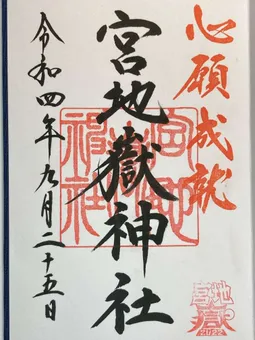 心願成就
宮地嶽神社
令和四年九月二十五日
宮地嶽
2022